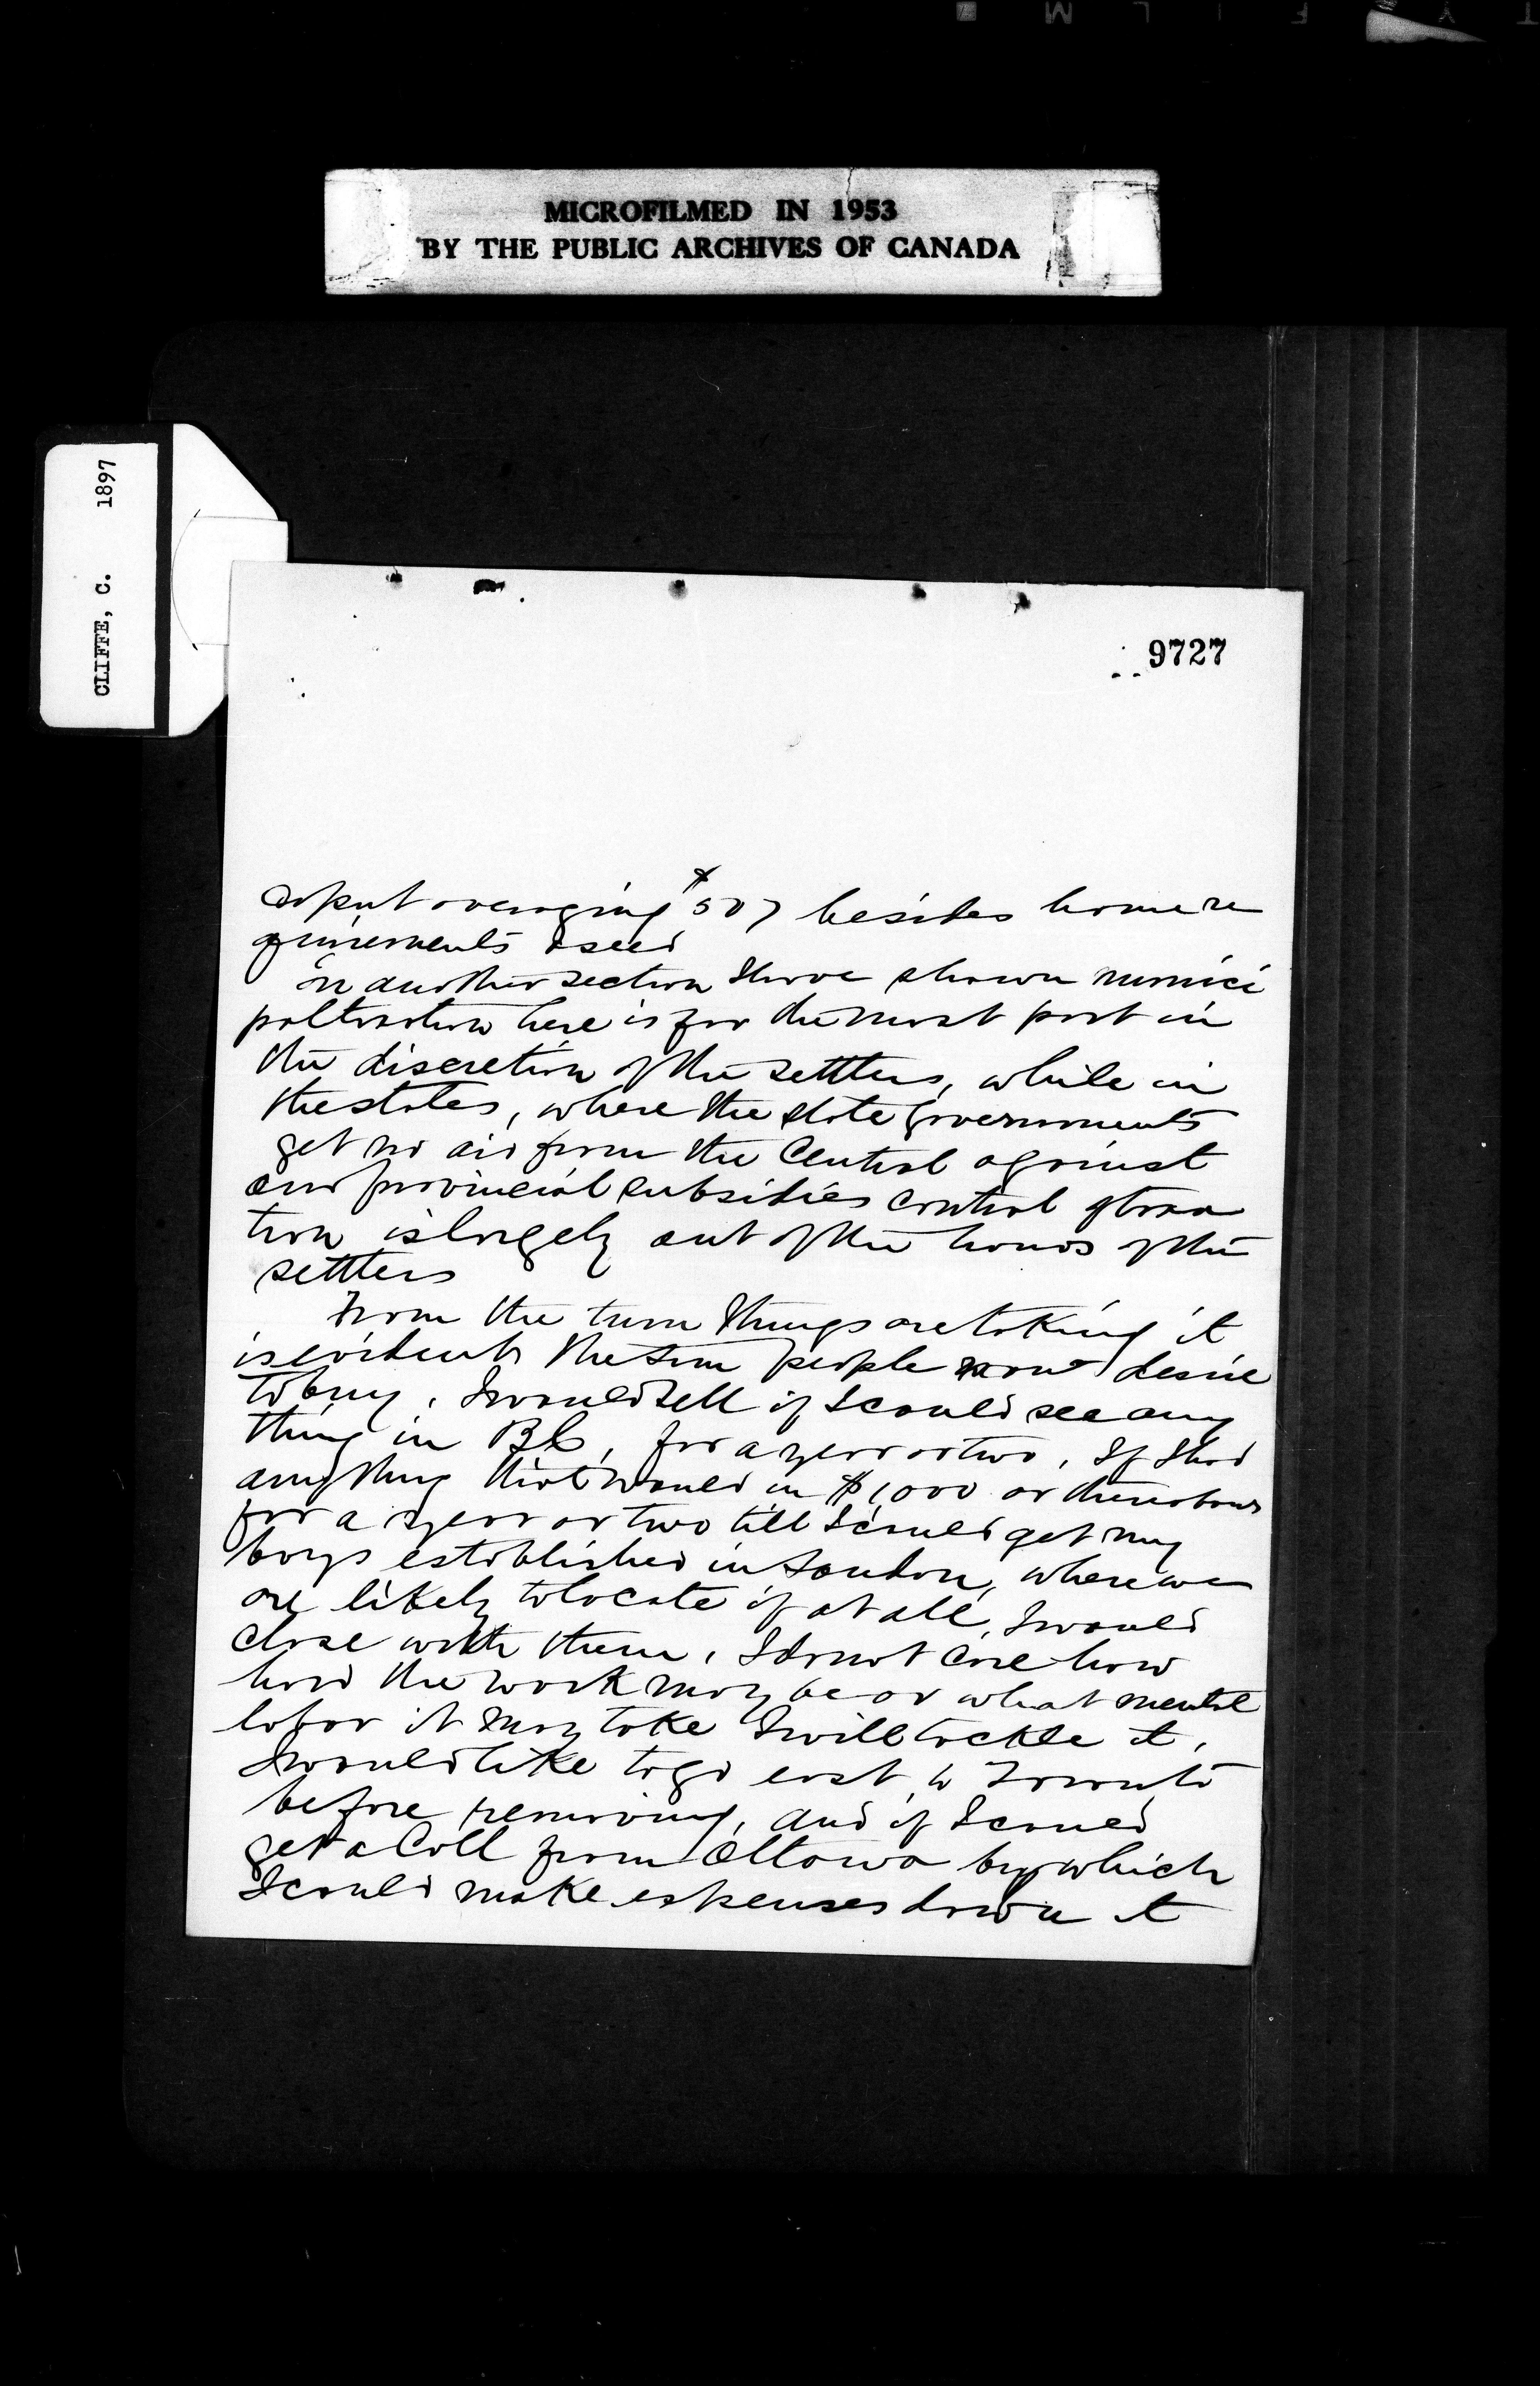 MICROFILMED IN 1953
BY THE PUBLIC ARCHIVES OF CANADA
CLIFFE, C. 1897
9727
output averaging $507 besides home re
quirements & seed
In another section I have shown munici
pal taxation here is for the most part in
the discretion of the settlers, while in
the states, where the state governments
get no aid from the Central against
our provincial subsidies control of taxa
tion is largely out of the hands of the
settlers
From the turn things are taking it
is evident the Sun people now desire
to buy. I would sell if I could see any
thing in BC, for a year or two. If I had
anything that would in $1,000 or thereabouts
for a year or two till I could get my
boys established in London, where we
are likely to locate if at all, I would
close with them. I do not care how
hard the work may be or what mental
labor it may take I will tackle it.
I would like to go east to Toronto
before removing, and if I could
get a Call from Ottawa by which
I could make expenses down it